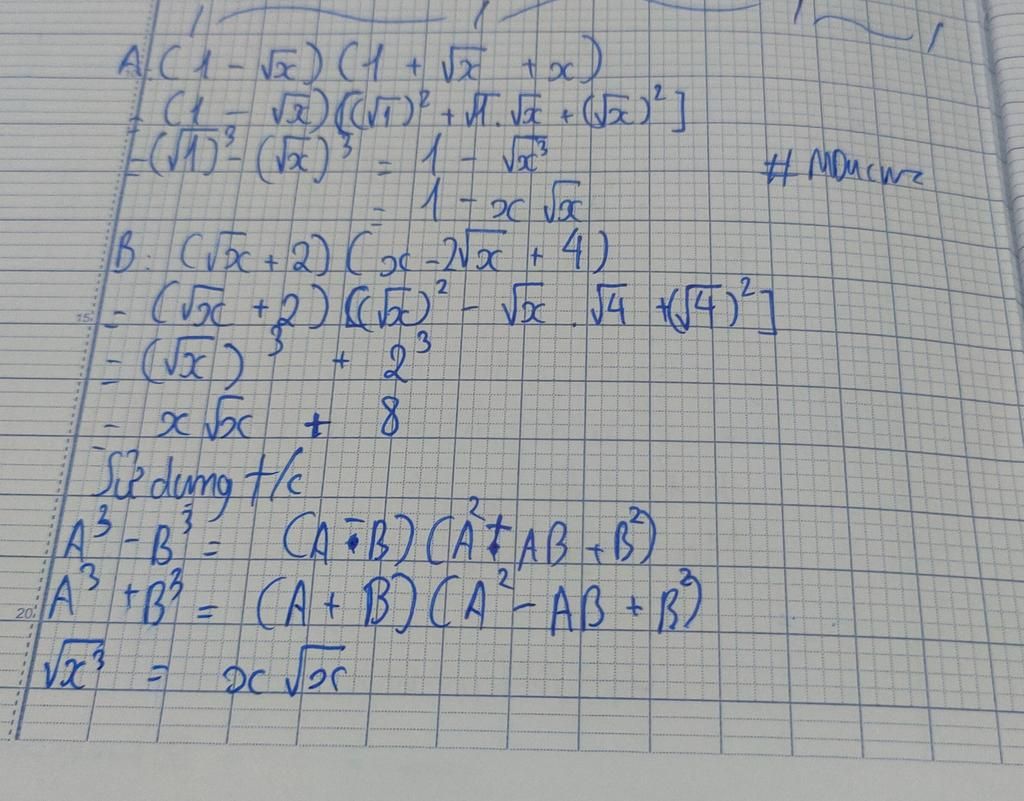 A. (1 - √x) (1 + √x + x)
= (1 - √x) [(√1)² + √1 . √x + (√x)²]
= (√1)³ - (√x)³ = 1 - √x³
= 1 - x √x
B. (√x + 2) (x - 2√x + 4)
15
= (√x + 2) [(√x)² - √x . √4 + (√4)²]
= (√x)³ + 2³
= x √x + 8
Sử dụng t/c
A³ - B³ = (A - B) (A² + AB + B²)
20
A³ + B³ = (A + B) (A² - AB + B²)
√x³ = x √x